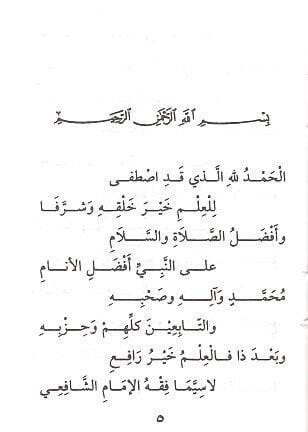 بِسْمِ ٱللَّهِ ٱلرَّحْمَٰنِ ٱلرَّحِيمِ
الْحَمْدُ للهِ الَّذي قَدِ اصْطفى
لِلْعِلْمِ خَيْرَ خَلْقِهِ وَشرَّفَا
وأَفْضَلُ الصَّلاَةِ والسَّلاَمِ
على النَّبِيِّ أَفْضَلِ الأنامِ
مُحَمَّدٍ وَآلِهِ وصَحْبِهِ
والتَّابِعِيْنَ كلِّهِمْ وَحِزْبِهِ
وبَعْدَ ذا فالْعِلْمُ خَيْرُ رافِعِ
لاسِيَّمَا فِقْهُ الإمَامِ الشَّافِعِي
٥